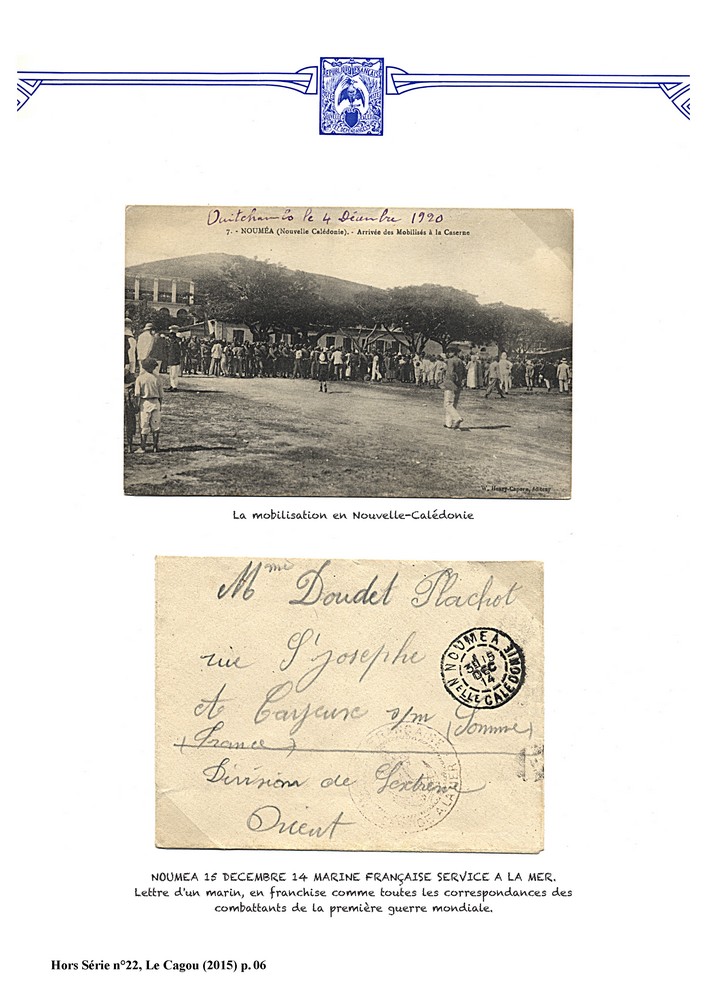 REPUBLIQUE FRANÇAISE
Ouitchambo le 4 Décembre 1920
7. - NOUMÉA (Nouvelle Calédonie). - Arrivée des Mobilisés à la Caserne
W. Henry-Caporn, éditeur
La mobilisation en Nouvelle-Calédonie
Mme Doudet Plachot
rue St josephe
NOUMEA
15
DEC
14
NELLE CALÉDONIE
s/m (Somme)
(France)
Division de l'extreme
Orient
A LA MER
NOUMEA 15 DECEMBRE 14 MARINE FRANÇAISE SERVICE A LA MER.
Lettre d'un marin, en franchise comme toutes les correspondances des
combattants de la première guerre mondiale.
Hors Série n°22, Le Cagou (2015) p. 06